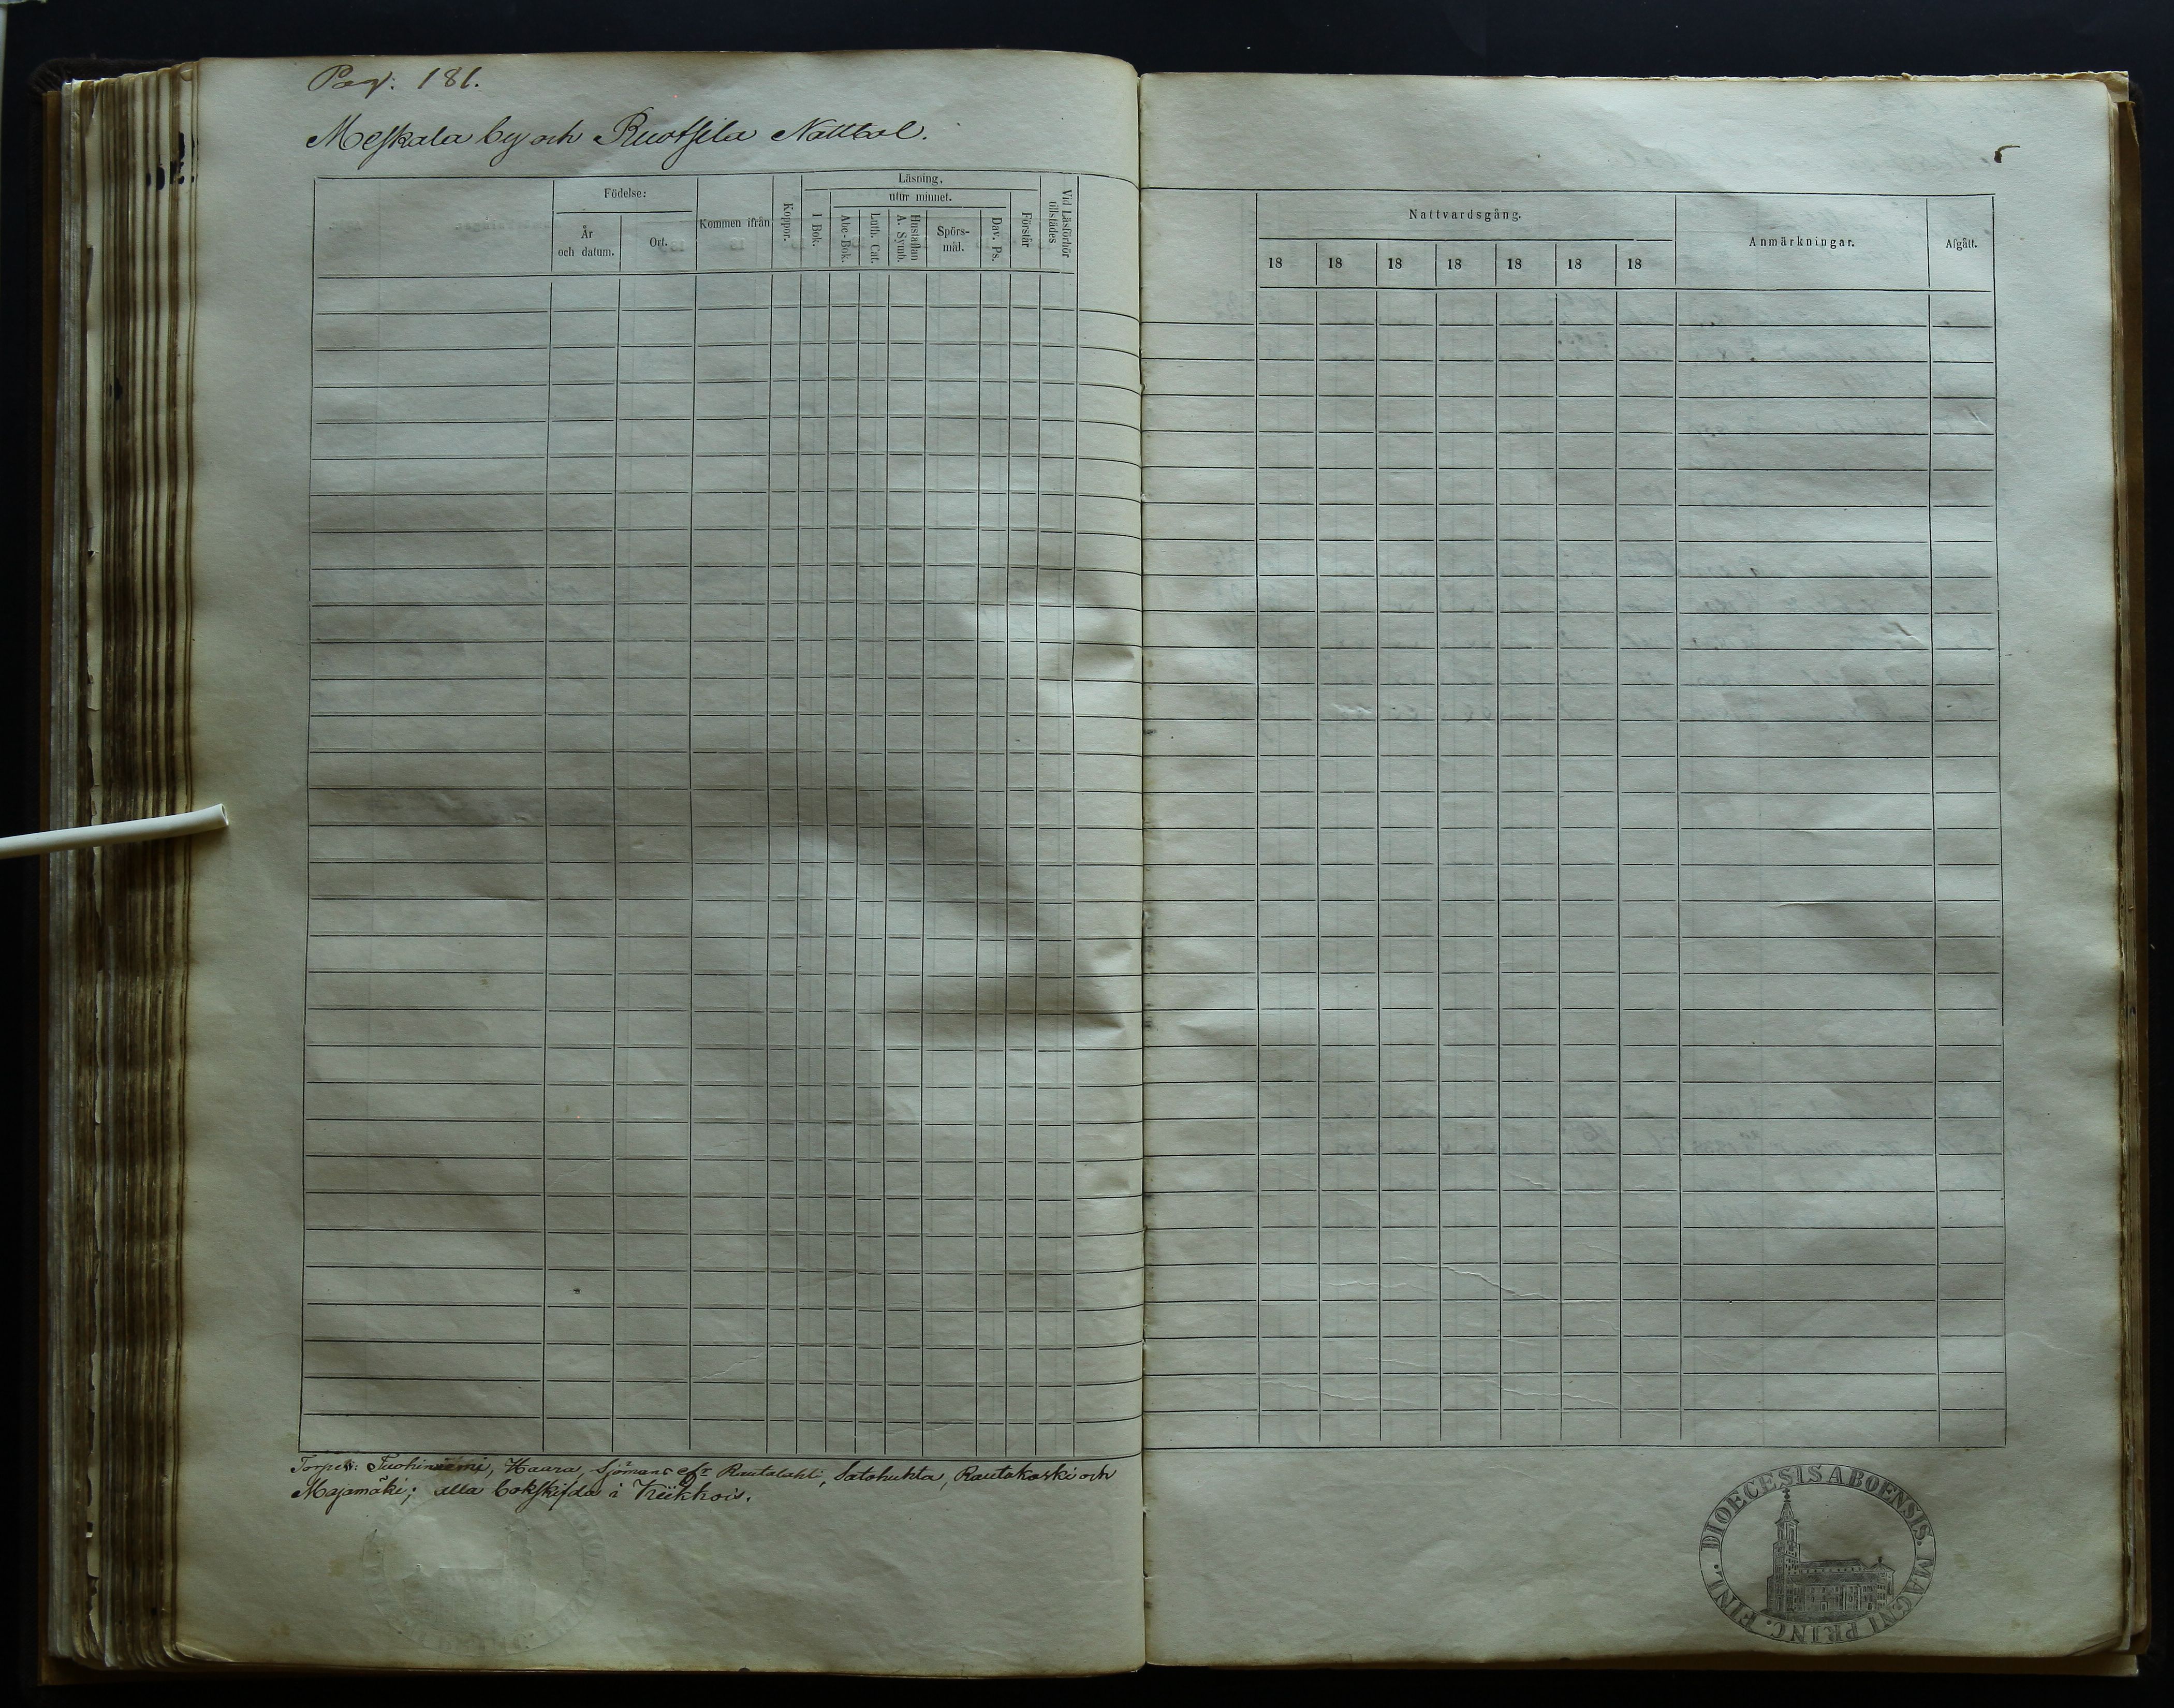 Pag: 181.
Meskala by och Ruotsila Nattbol.
Födelse:
År
och datum.
Ort.
Kommen ifrån
Koppor.
Läsning.
utur minnet.
I Bok.
Abc-Bok.
Luth. Cat.
Hustaflan
A. Symb.
Spörs-
mål.
Dav. Ps.
Förstår
Vid Läsförhör
tillstädes
Nattvardsgång.
18 18 18 18 18 18 18
Anmärkningar.
Afgått.
Torpen: Tuohiniemi, Haara, Sjömans eft Rautalahti, Satohuhta, Rautakoski och
Majamäki; alla bokskifda i Kiikhois.
DIOECESIS ABOENSIS. MAGNI PRINC. FINL.